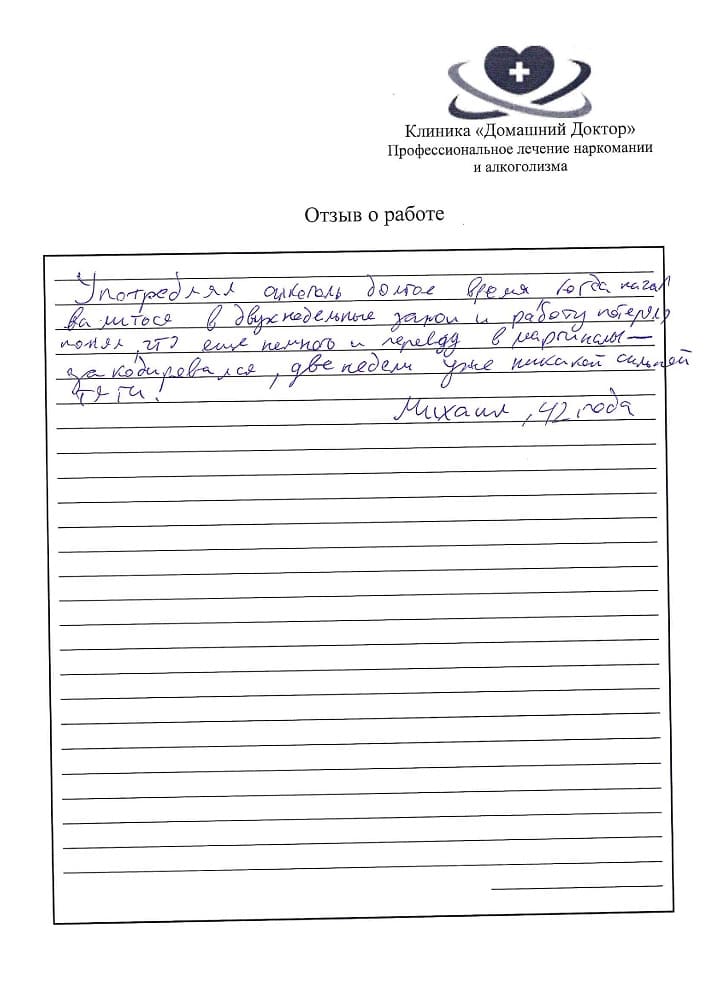 Клиника «Домашний Доктор»
Профессиональное лечение наркомании
и алкоголизма
Отзыв о работе
Употреблял алкоголь долгое время когда начал
валиться в двухнедельные запои и работу потерял
понял, что еще немного и перейду в маргиналы —
закодировался, две недели уже никакой сильной
тяги!
Михаил, 42 года